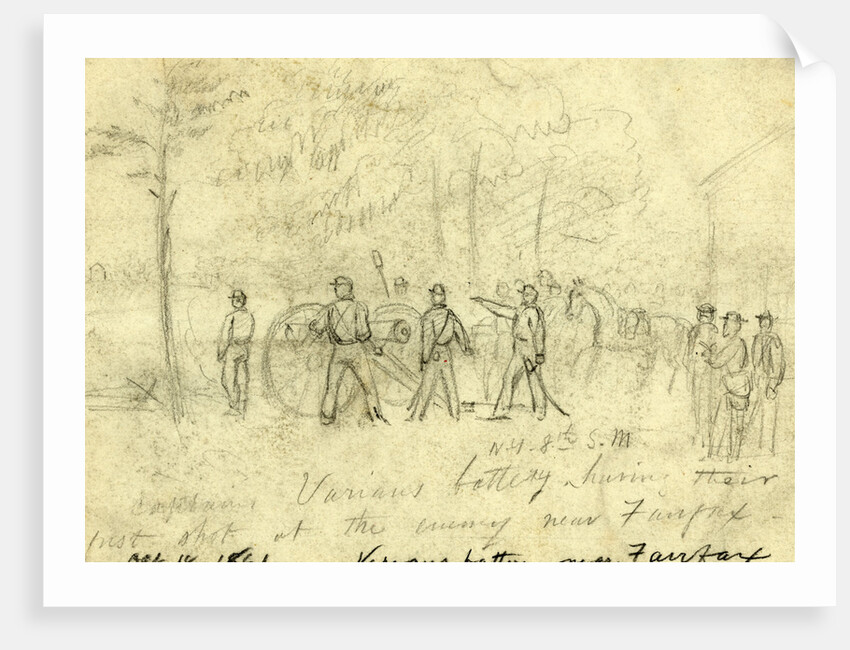 N.Y. 8th S.M
Captains Varians battery, having their
first shot at the enemy near Fairfax -
1861 Varians battery near Fairfax